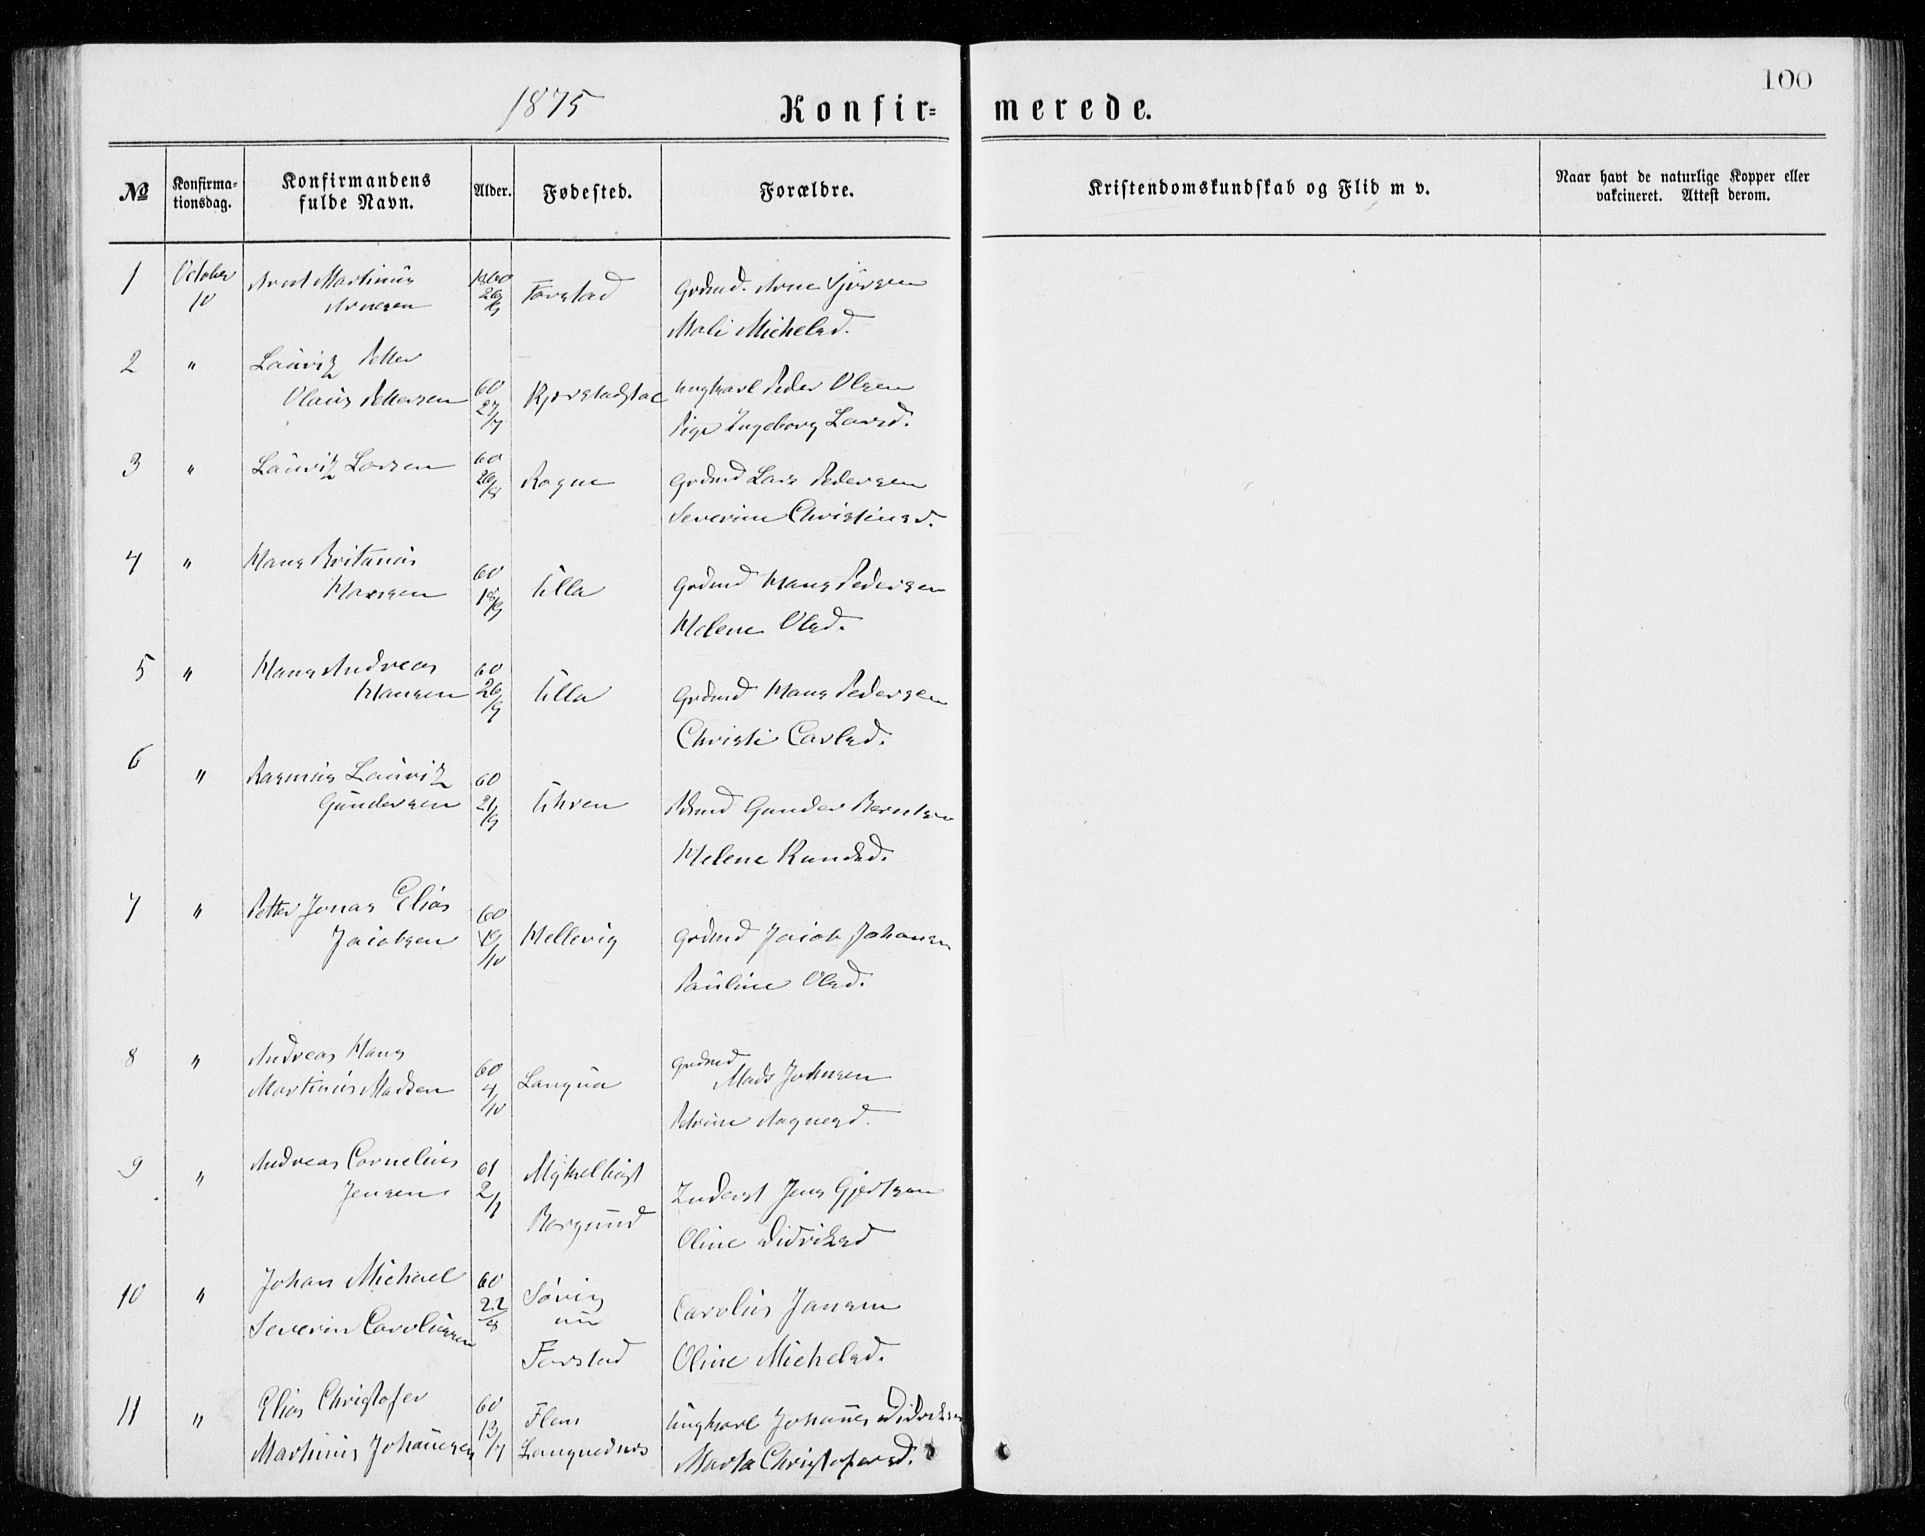 100
1875
Konfir-
merede.
№
Konfirma-
tionsdag.
Konfirmandens
fulde Navn.
Alder.
Fødested.
Forældre.
Kristendomskundskab og Flid m v.
Naar havt de naturlige Kopper eller
vakcineret. Attest derom.
1 October 10 Arnt Martinus 1860
Arnesen 26/6 Farstad Grdmd. Arne
Mali Michelsd.
2 " Lauritz Petter
Olaus Pettersen 60 27/7 Ungkarl Peder Olsen
Pige Ingeborg Larsd.
3 " Lauritz Larsen 60
26/8 Rogne Grdmd Lars Pedersen
Severine Christensd.
4 " Hans Britanus
Hansen 60 18/9 Ulla Grdmd Hans Pedersen
Helene Olsd.
5 " Hans Andreas 60
Hansen 26/9 Ulla Grdmd Hans Pedersen
Christi Carlsd.
6 " Rasmus Lauritz 60
Gundersen 21/9 Uhren Gunder Berntsen
Helene Knudsd.
7 " Petter Jonas Elias 60
Jacobsen 19/10 Hellevig Grdmd Jacob Johansen
Pauline Olsd.
8 " Andreas Hans Grdmd
Martinus Madsen 60 4/10 Longva Mads Johnsen
Petrine Aagnesd.
9 " Andreas Cornelius 61 Myklebust
Jensen 2/1 Inderst Jens Gjertsen
Borgund Oline Didriksd
10 " Johan Michael 60 22/8 Søvig
nu Carolus Jansen
Severin Carolussen
Farstad Oline Michelsd.
11 " Elias Christofer 60 13/7 Flem Ungkarl Johannes Didriksen
Martinus Johannesen Longvednes Marta Christofersd.